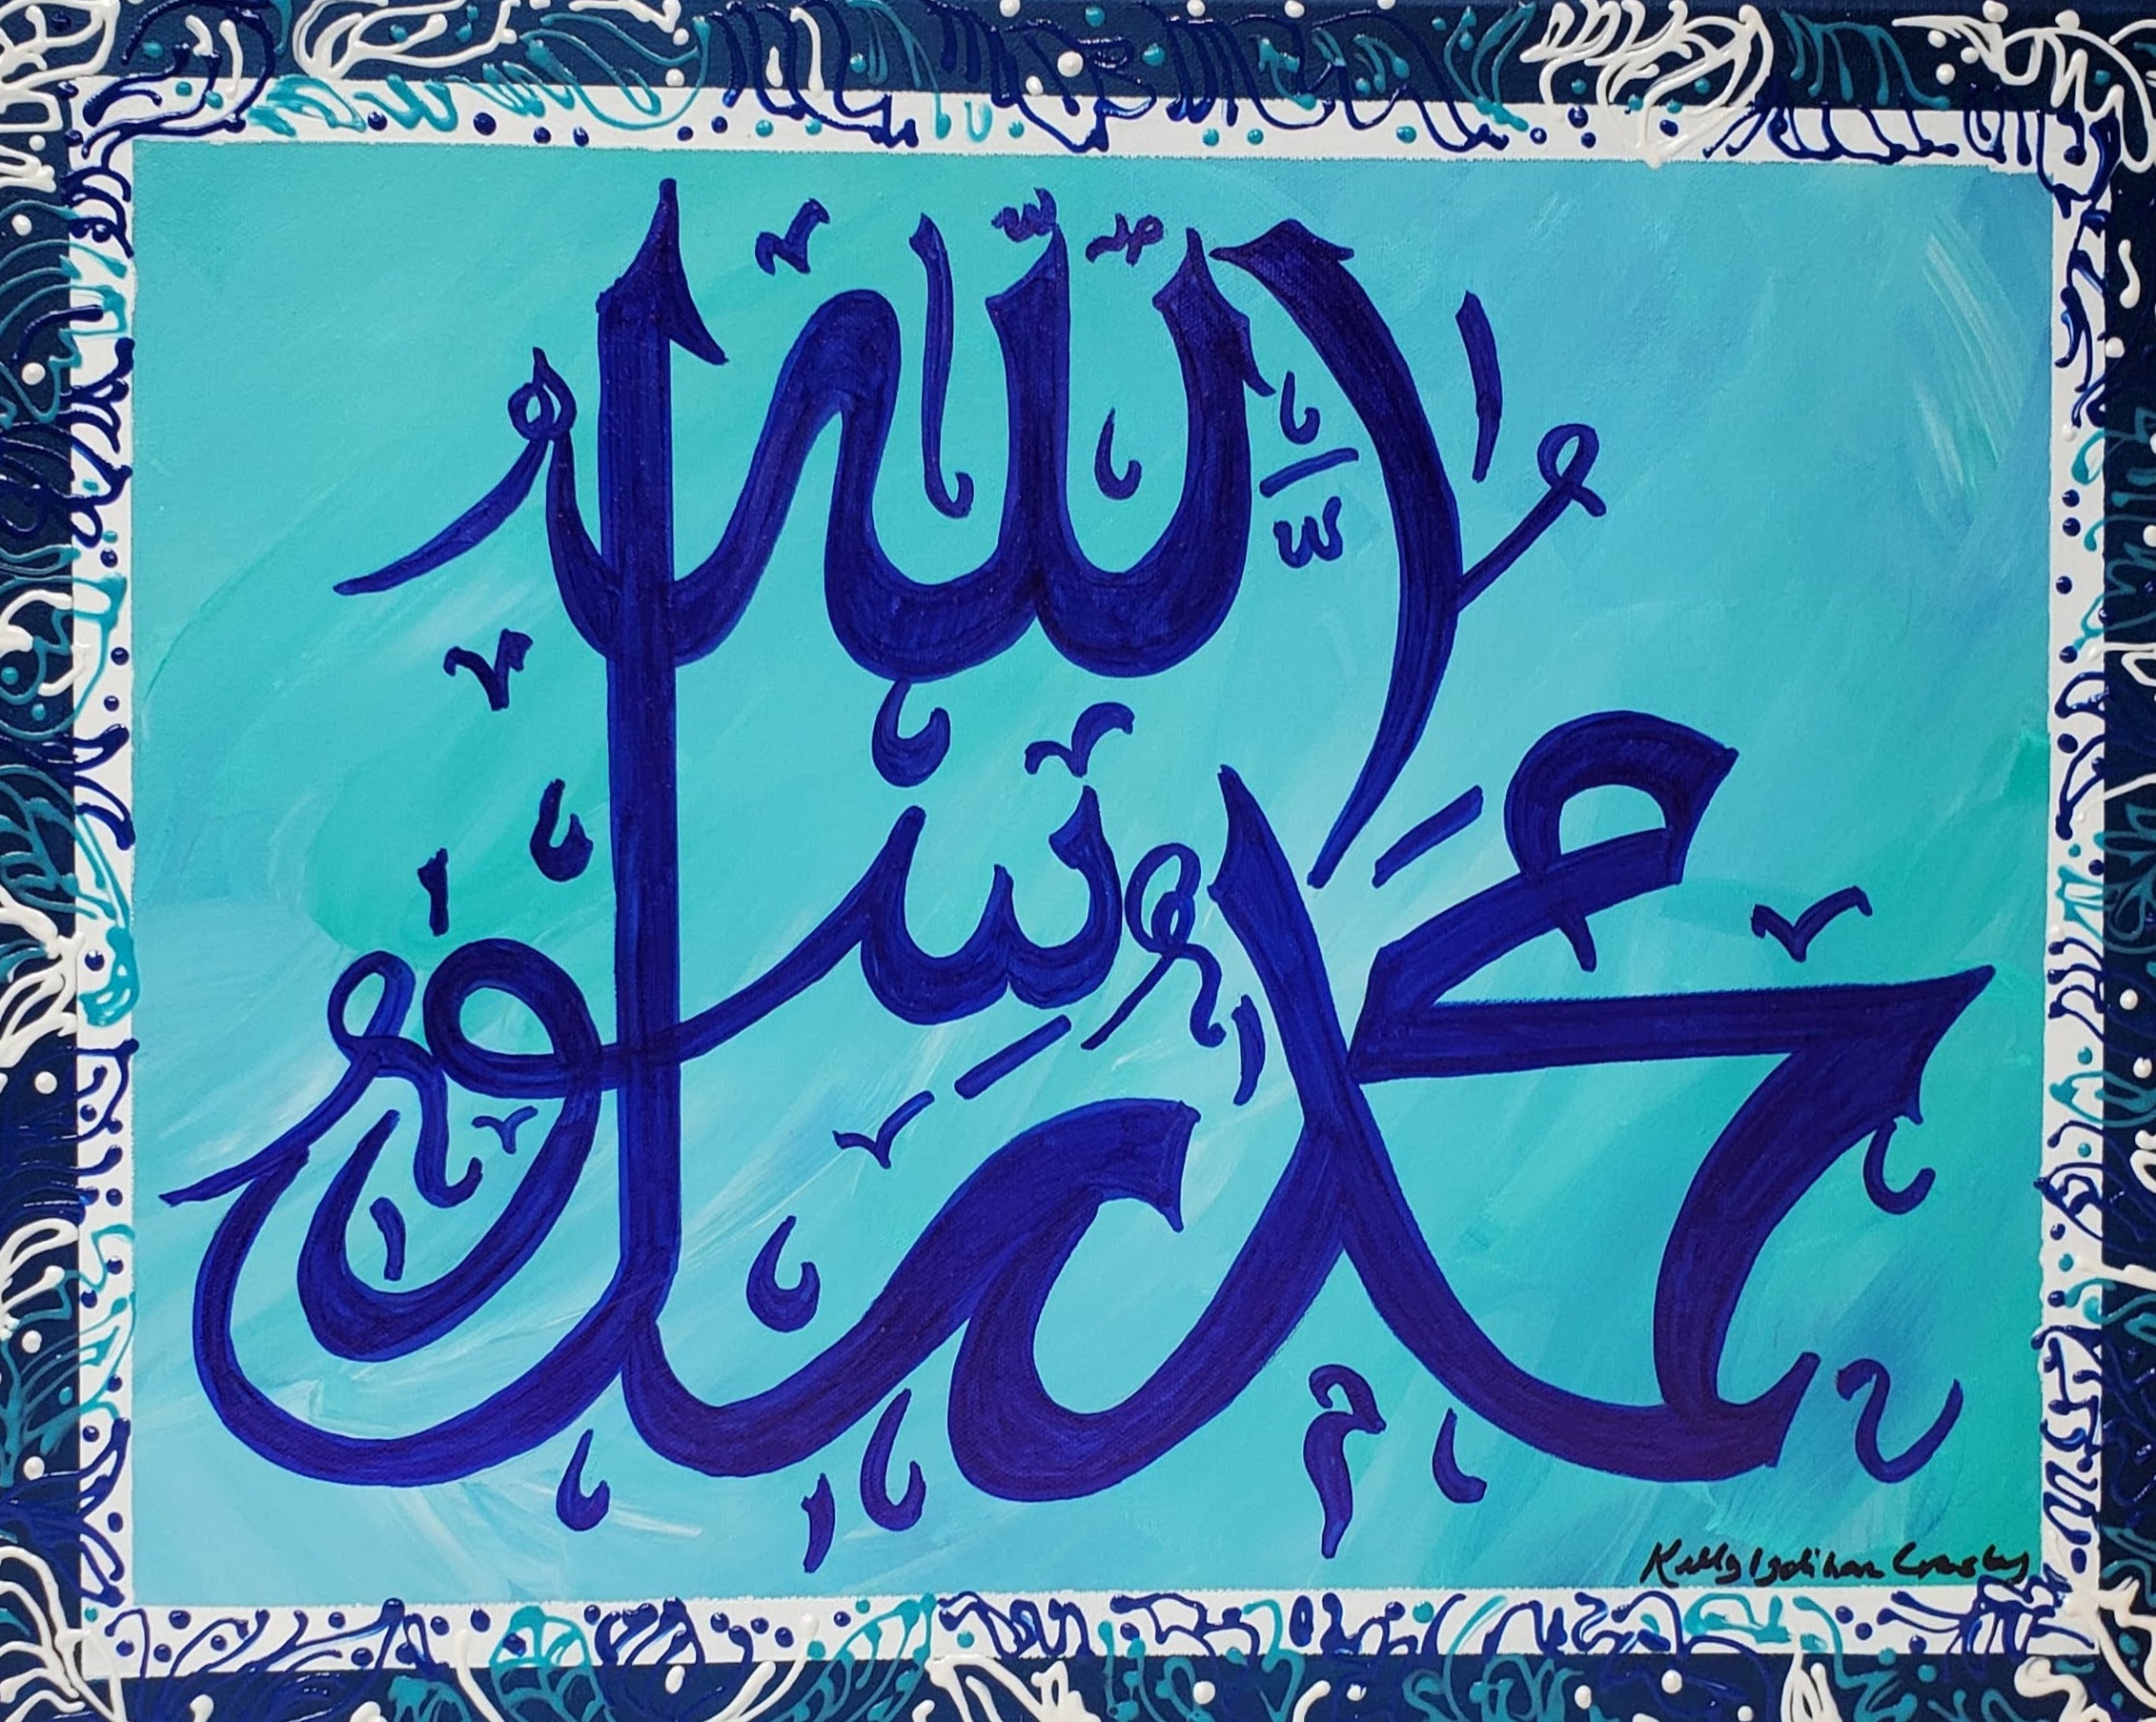 محمد رسول الله
Kelly Izdihar Crosby